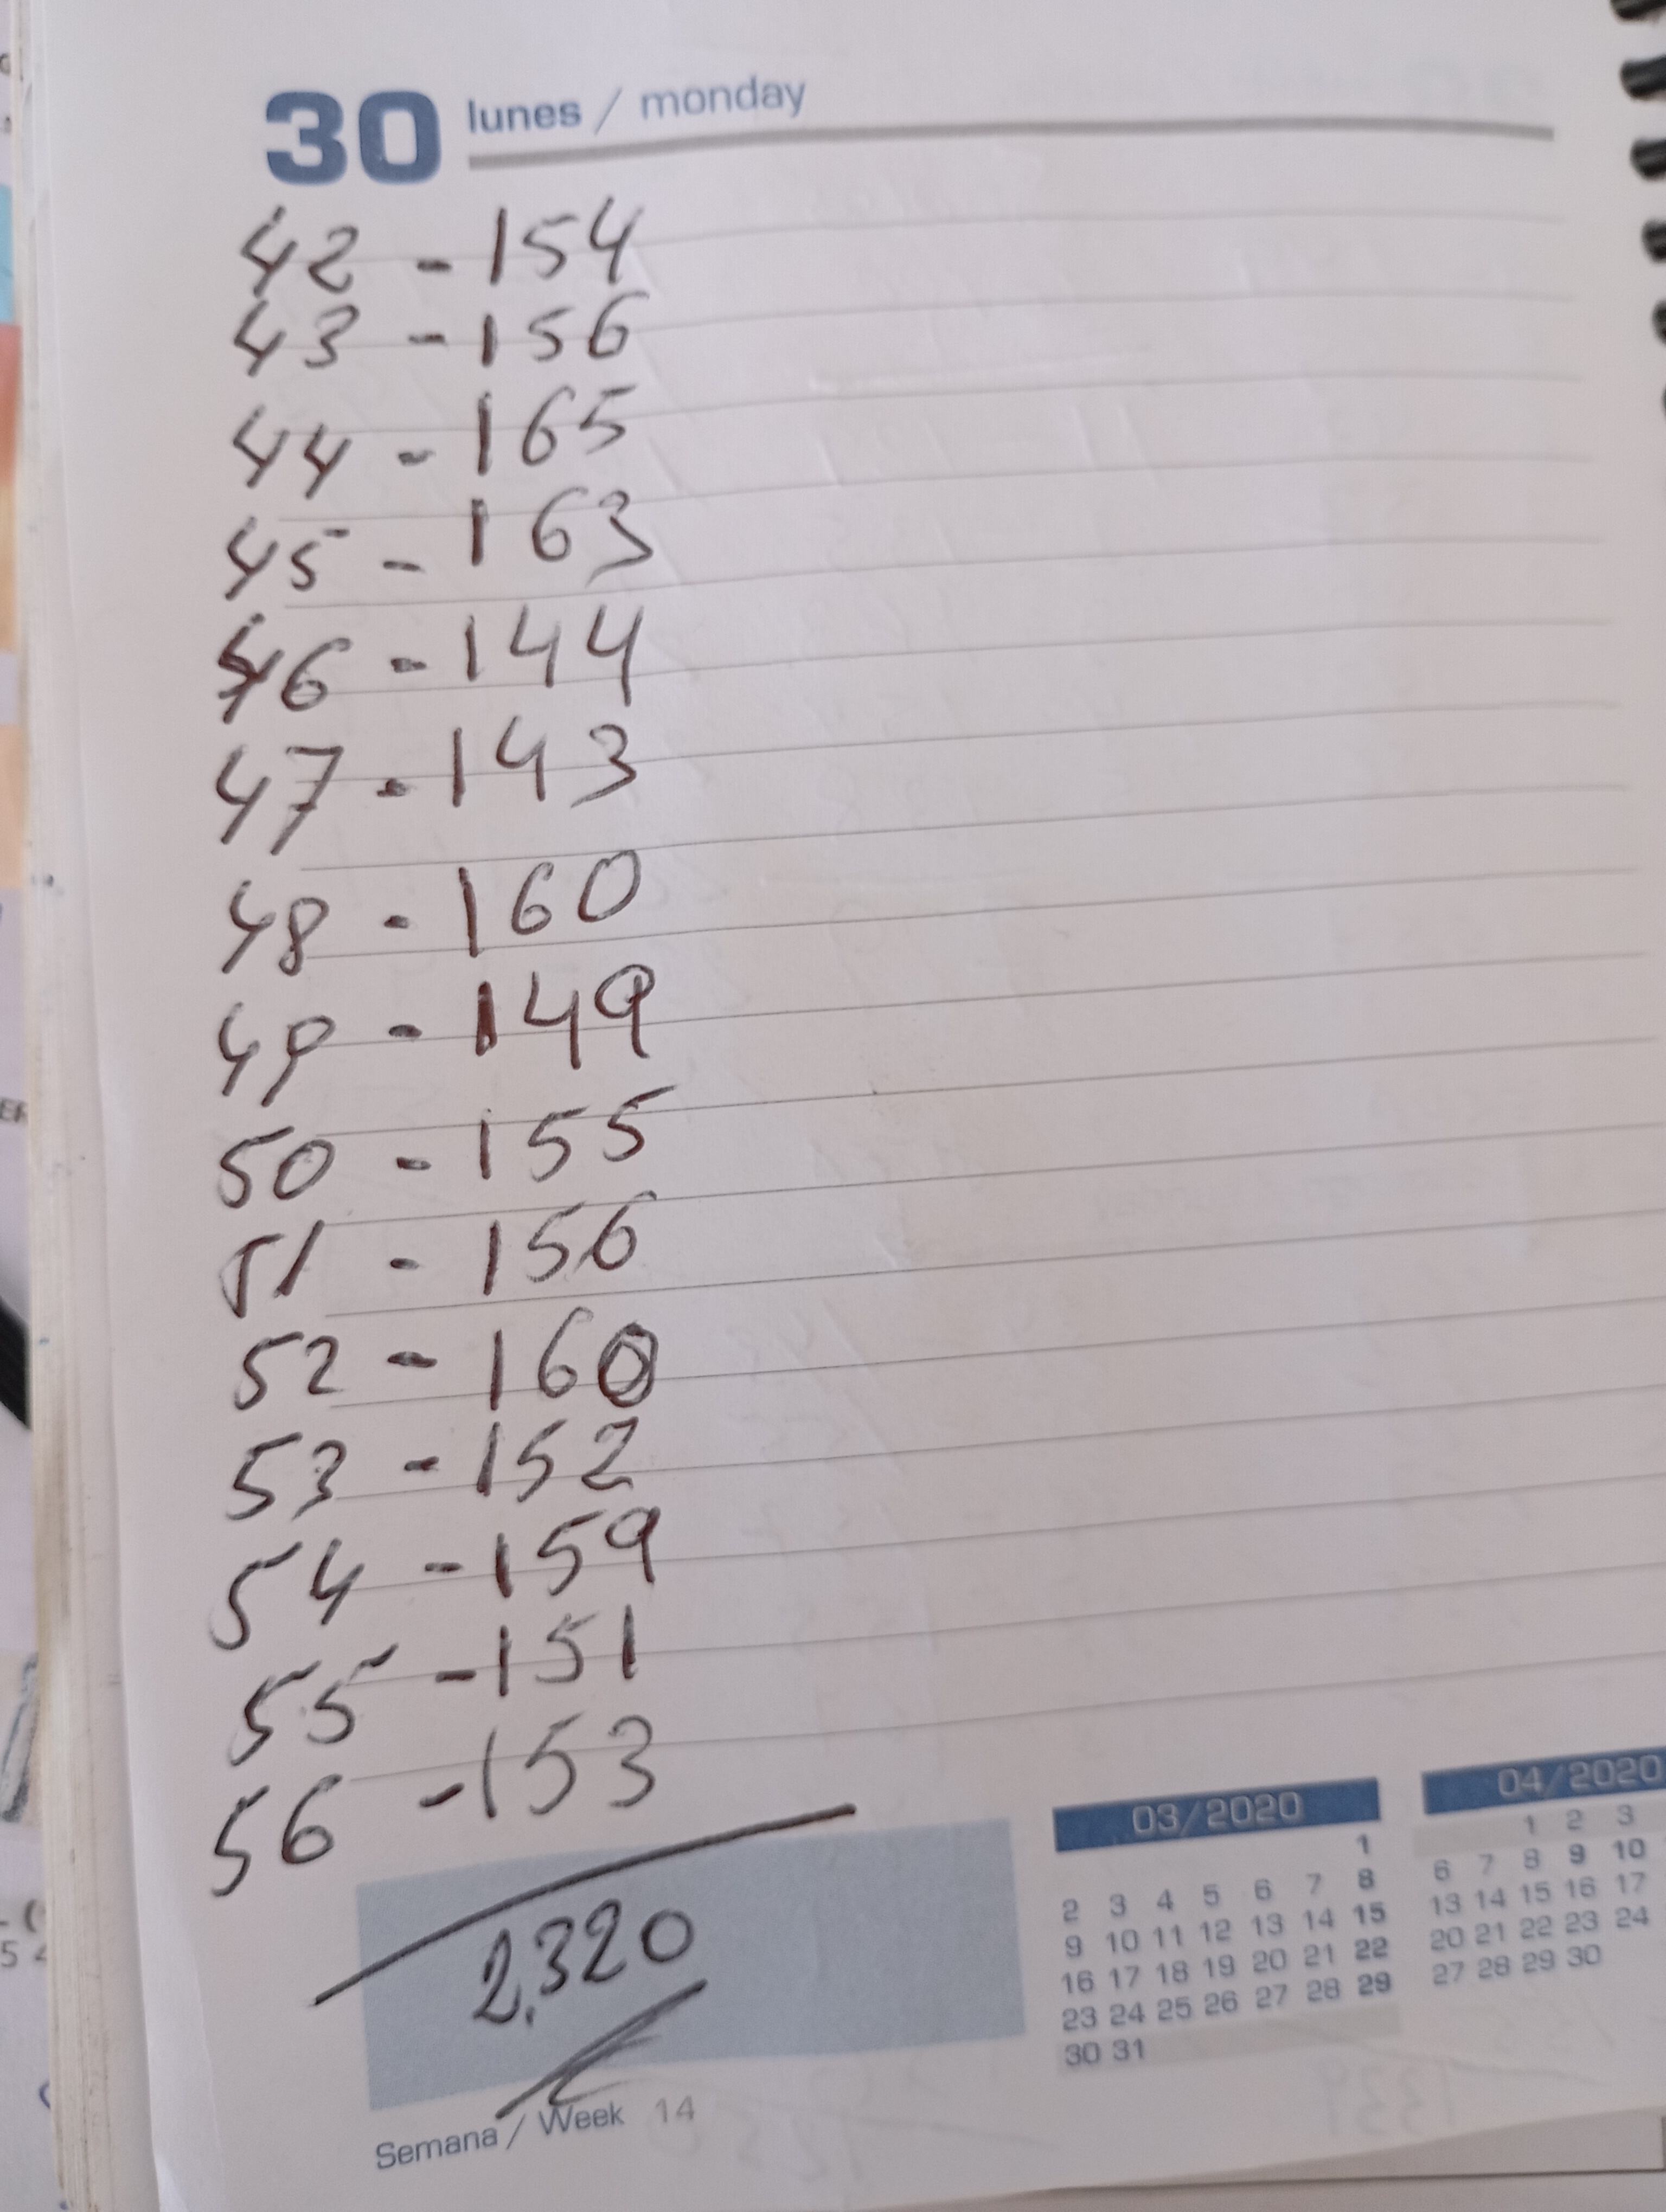 30 lunes / monday
42 - 154
43 - 156
44 - 165
45 - 163
46 - 144
47 - 143
48 - 160
49 - 149
50 - 155
51 - 156
52 - 160
53 - 152
54 - 159
55 - 151
56 - 153
2.320
Semana / Week 14
03/2020
1
2 3 4 5 6 7 8
9 10 11 12 13 14 15
16 17 18 19 20 21 22
23 24 25 26 27 28 29
30 31
04/2020
1 2 3
6 7 8 9 10
13 14 15 16 17
20 21 22 23 24
27 28 29 30